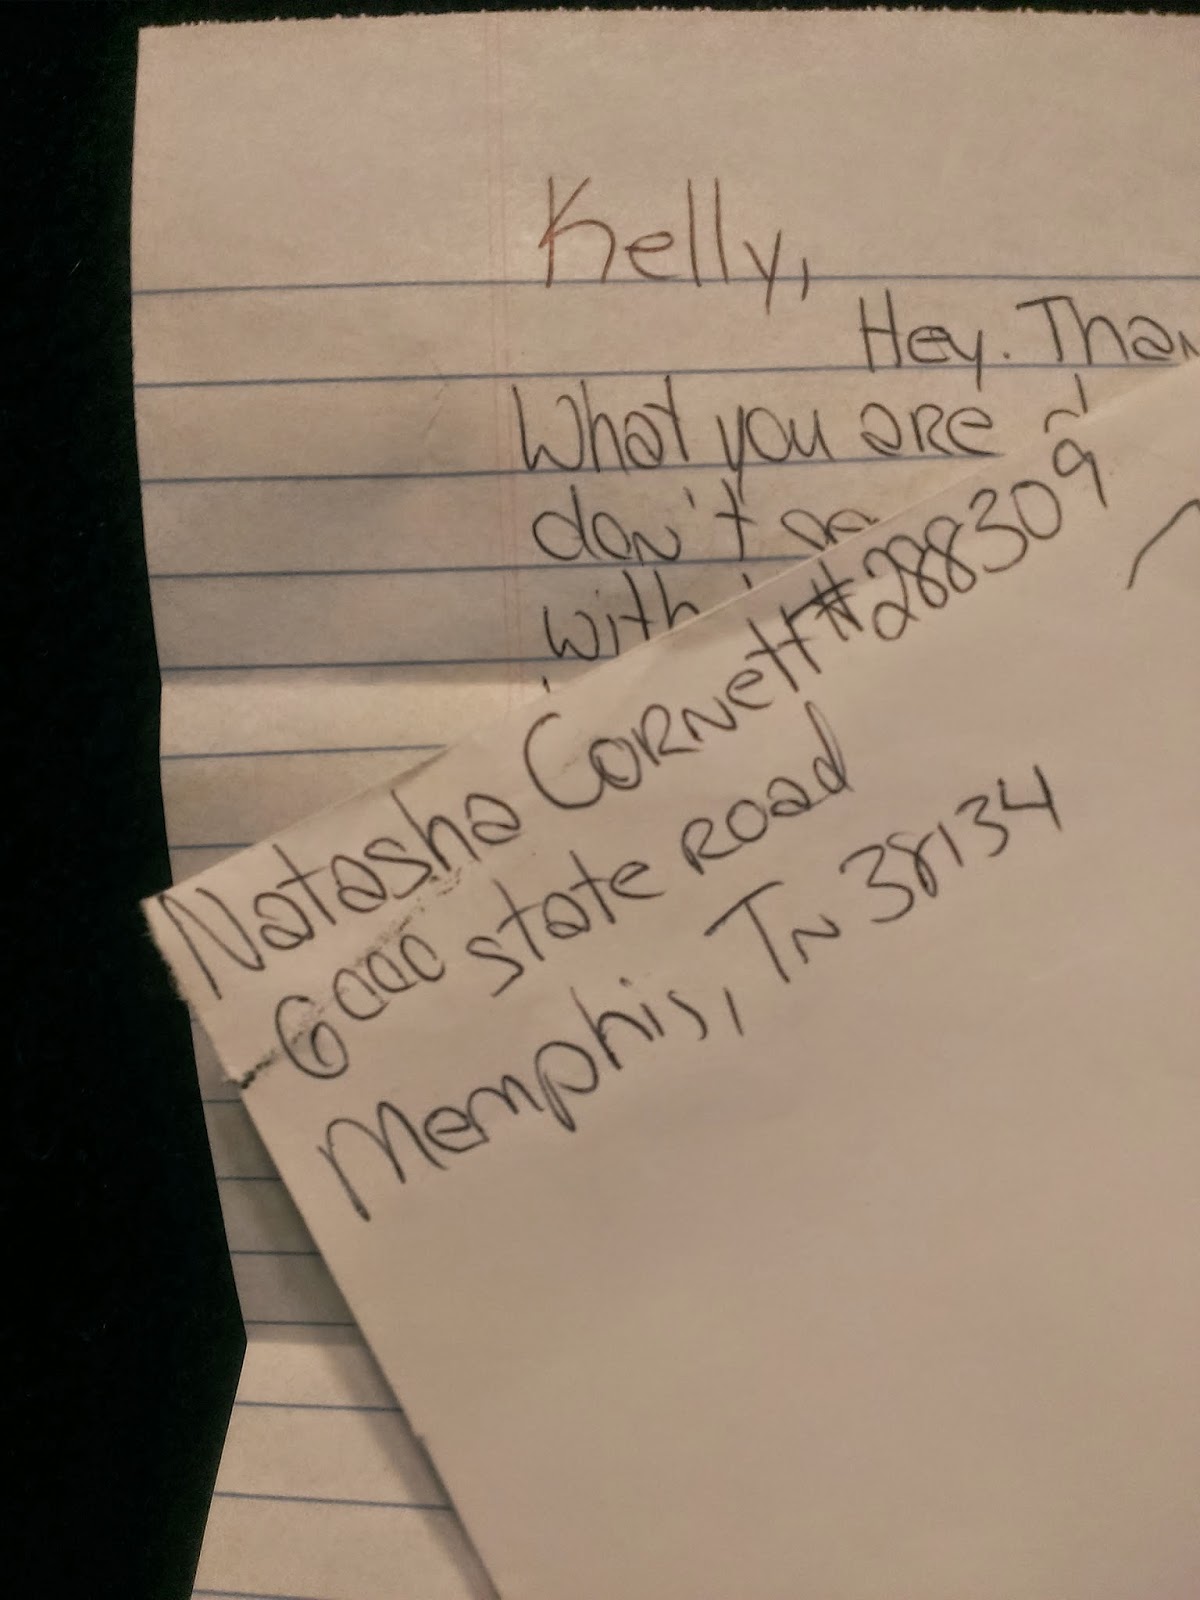 Kelly,
Hey. Than
What you are
don't
with
Natasha Cornett #288309
6000 state Road
Memphis, TN 38134